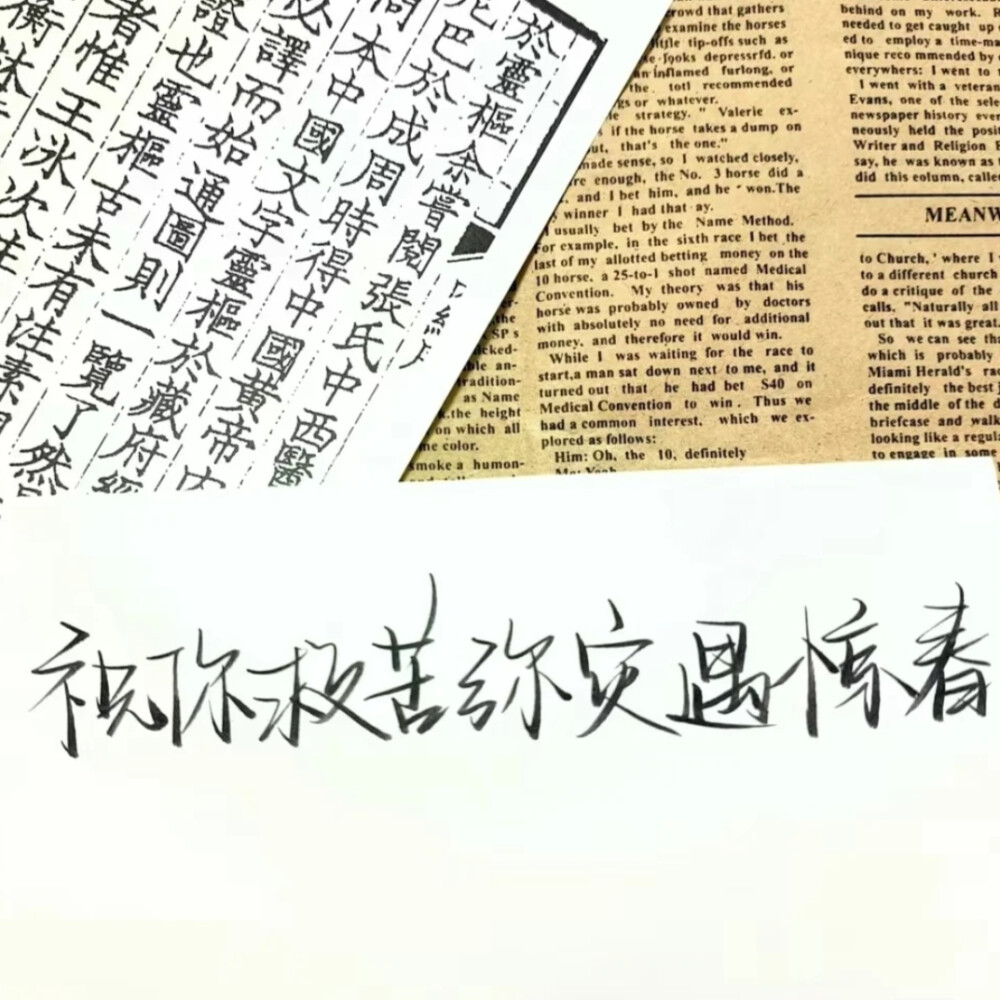 於靈樞余嘗閱張氏中西醫
元巴於成周時得中國黃帝內
中國文字靈樞於藏府經
必譯而始通圖則一覽了然
證也靈樞古未有注素問
者惟王冰次注
rowd that gathers
examine the horses
little tip-offs such as
looks depressrfd. or
an inflamed furlong, or
the totl recommended
gs or whatever.
strategy." Valerie ex-
if the horse takes a dump on
ut, that's the one."
made sense, so I watched closely,
re enough, the No. 3 horse did a
and I bet him, and he won.The
winner I had that ay.
I usually bet by the Name Method.
For example, in the sixth race I bet the
last of my allotted betting money on the
10 horse, a 25-to-1 shot named Medical
Convention. My theory was that his
horse was probably owned by doctors
with absolutely no need for additional
money, and therefore it would win.
While I was waiting for the race to
start,a man sat down next to me, and it
turned out that he had bet S40 on
Medical Convention to win. Thus we
had a common interest, which we ex-
plored as follows:
Him: Oh, the 10, definitely
Me: Yeah
the
SP's
icked-
ble an-
radition-
as Name
k.the height
on which all
me color.
smoke a humon-
behind on my work. R
needed to get caught up
ed to employ a time-ma
nique reco mmended by
everywhere: I went to
I went with a veteran
Evans, one of the sele
newspaper history ever
neously held the posit
Writer and Religion E
say, he was known as t
did this eolumn, calle
MEANW
to Church,' where I
to a different church
do a critique of the
calls. "Naturally all
out that it was great
So we can see tha
which is probably
Miami Herald's rac
definitely the best j
the middle of the d
briefcase and walk
looking like a regul
to engage in some
祝你救苦弥灾遇惊春